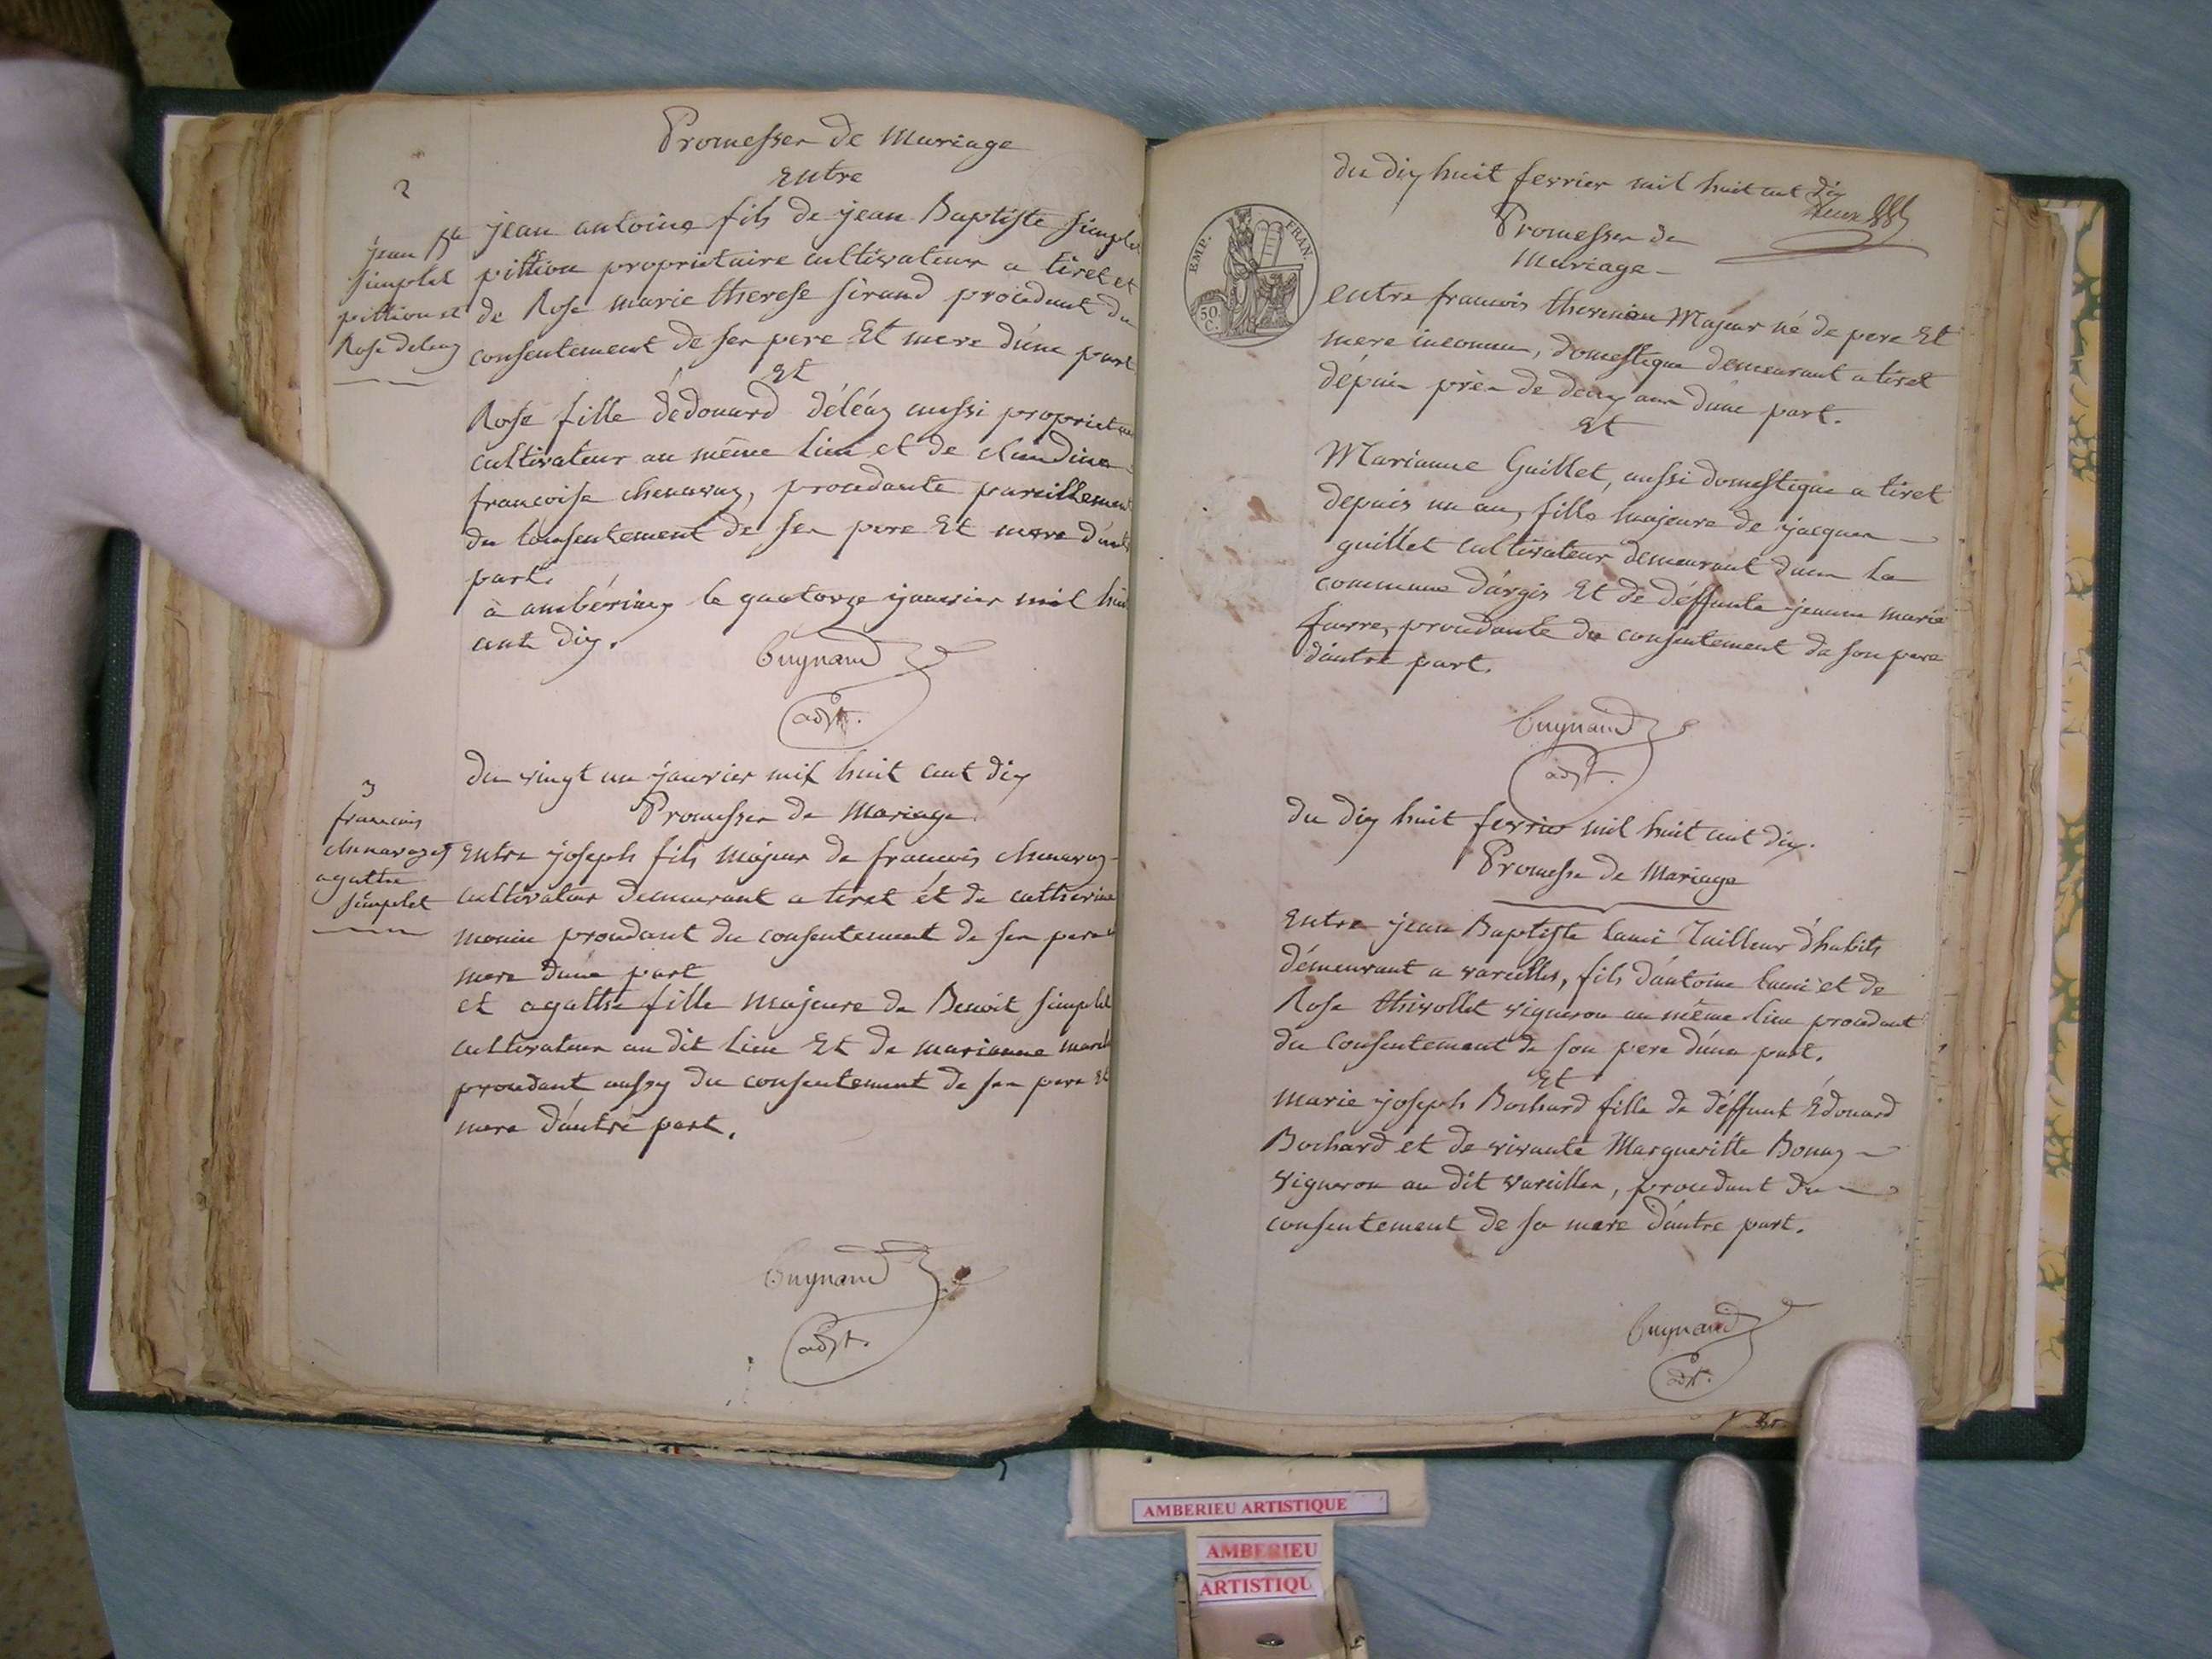 Promesses de Mariage
Entre
2
jean Bte
simplet
pittion et
Rose deleaz
jean antoine fils de jean Baptiste simplet
pittion proprietaire cultivateur a tiret et
de Rose marie therese sirand procedant du
consentement de ses pere Et mere d'une part
Et
Rose fille d'édouard déléaz aussi proprietaire
cultivateur au même lieu et de claudine
francoise chenavaz, procedante pareillement
du consentement de ses pere Et mere d'autre
part.
à ambérieux le quatorze janvier mil huit
cent dix.
Guynand
adjt.
du vingt un janvier mil huit cent dix
Promesses de Mariage
3
francois
chenavaz et
agathe
simplet
Entre joseph fils majeur de francois chenavaz
cultivateur demeurant a tiret et de catherine
monin procedant du consentement de ses pere et
mere d'une part
et agathe fille majeure de Benoit simplet
cultivateur au dit lieu Et de marianne
procedant aussy du consentement de ses pere Et
mere d'autre part.
Guynand
adjt.
du dix huit fevrier mil huit cent dix
Promesses de
Mariage
EMP. FRAN.
50.
C.
entre francois Majeur né de pere Et
mere inconnu, domestique demeurant a tiret
dépuis près de deux ans d'une part.
Et
Marianne Guillet, aussi domestique a tiret
depuis un an, fille majeure de jacques
guillet cultivateur demeurant dans la
commune d'argis Et de déffunte jeanne marie
procedante du consentement de son pere
d'autre part.
Guynand
adjt.
du dix huit fevrier mil huit cent dix.
Promesse de Mariage
Entre jean Baptiste lami Tailleur d'habits
démeurant a vareilles, fils d'antoine lami et de
Rose thivollet vigneron au même lieu procedant
du consentement de son pere d'une part.
Et
marie joseph Bochard fille de déffunt Edouard
Bochard et de vivante Margueritte Bonaz
vigneron au dit vareilles, procedant du
consentement de sa mere d'autre part.
Guynand
adjt.
AMBERIEU ARTISTIQUE
AMBERIEU
ARTISTIQU